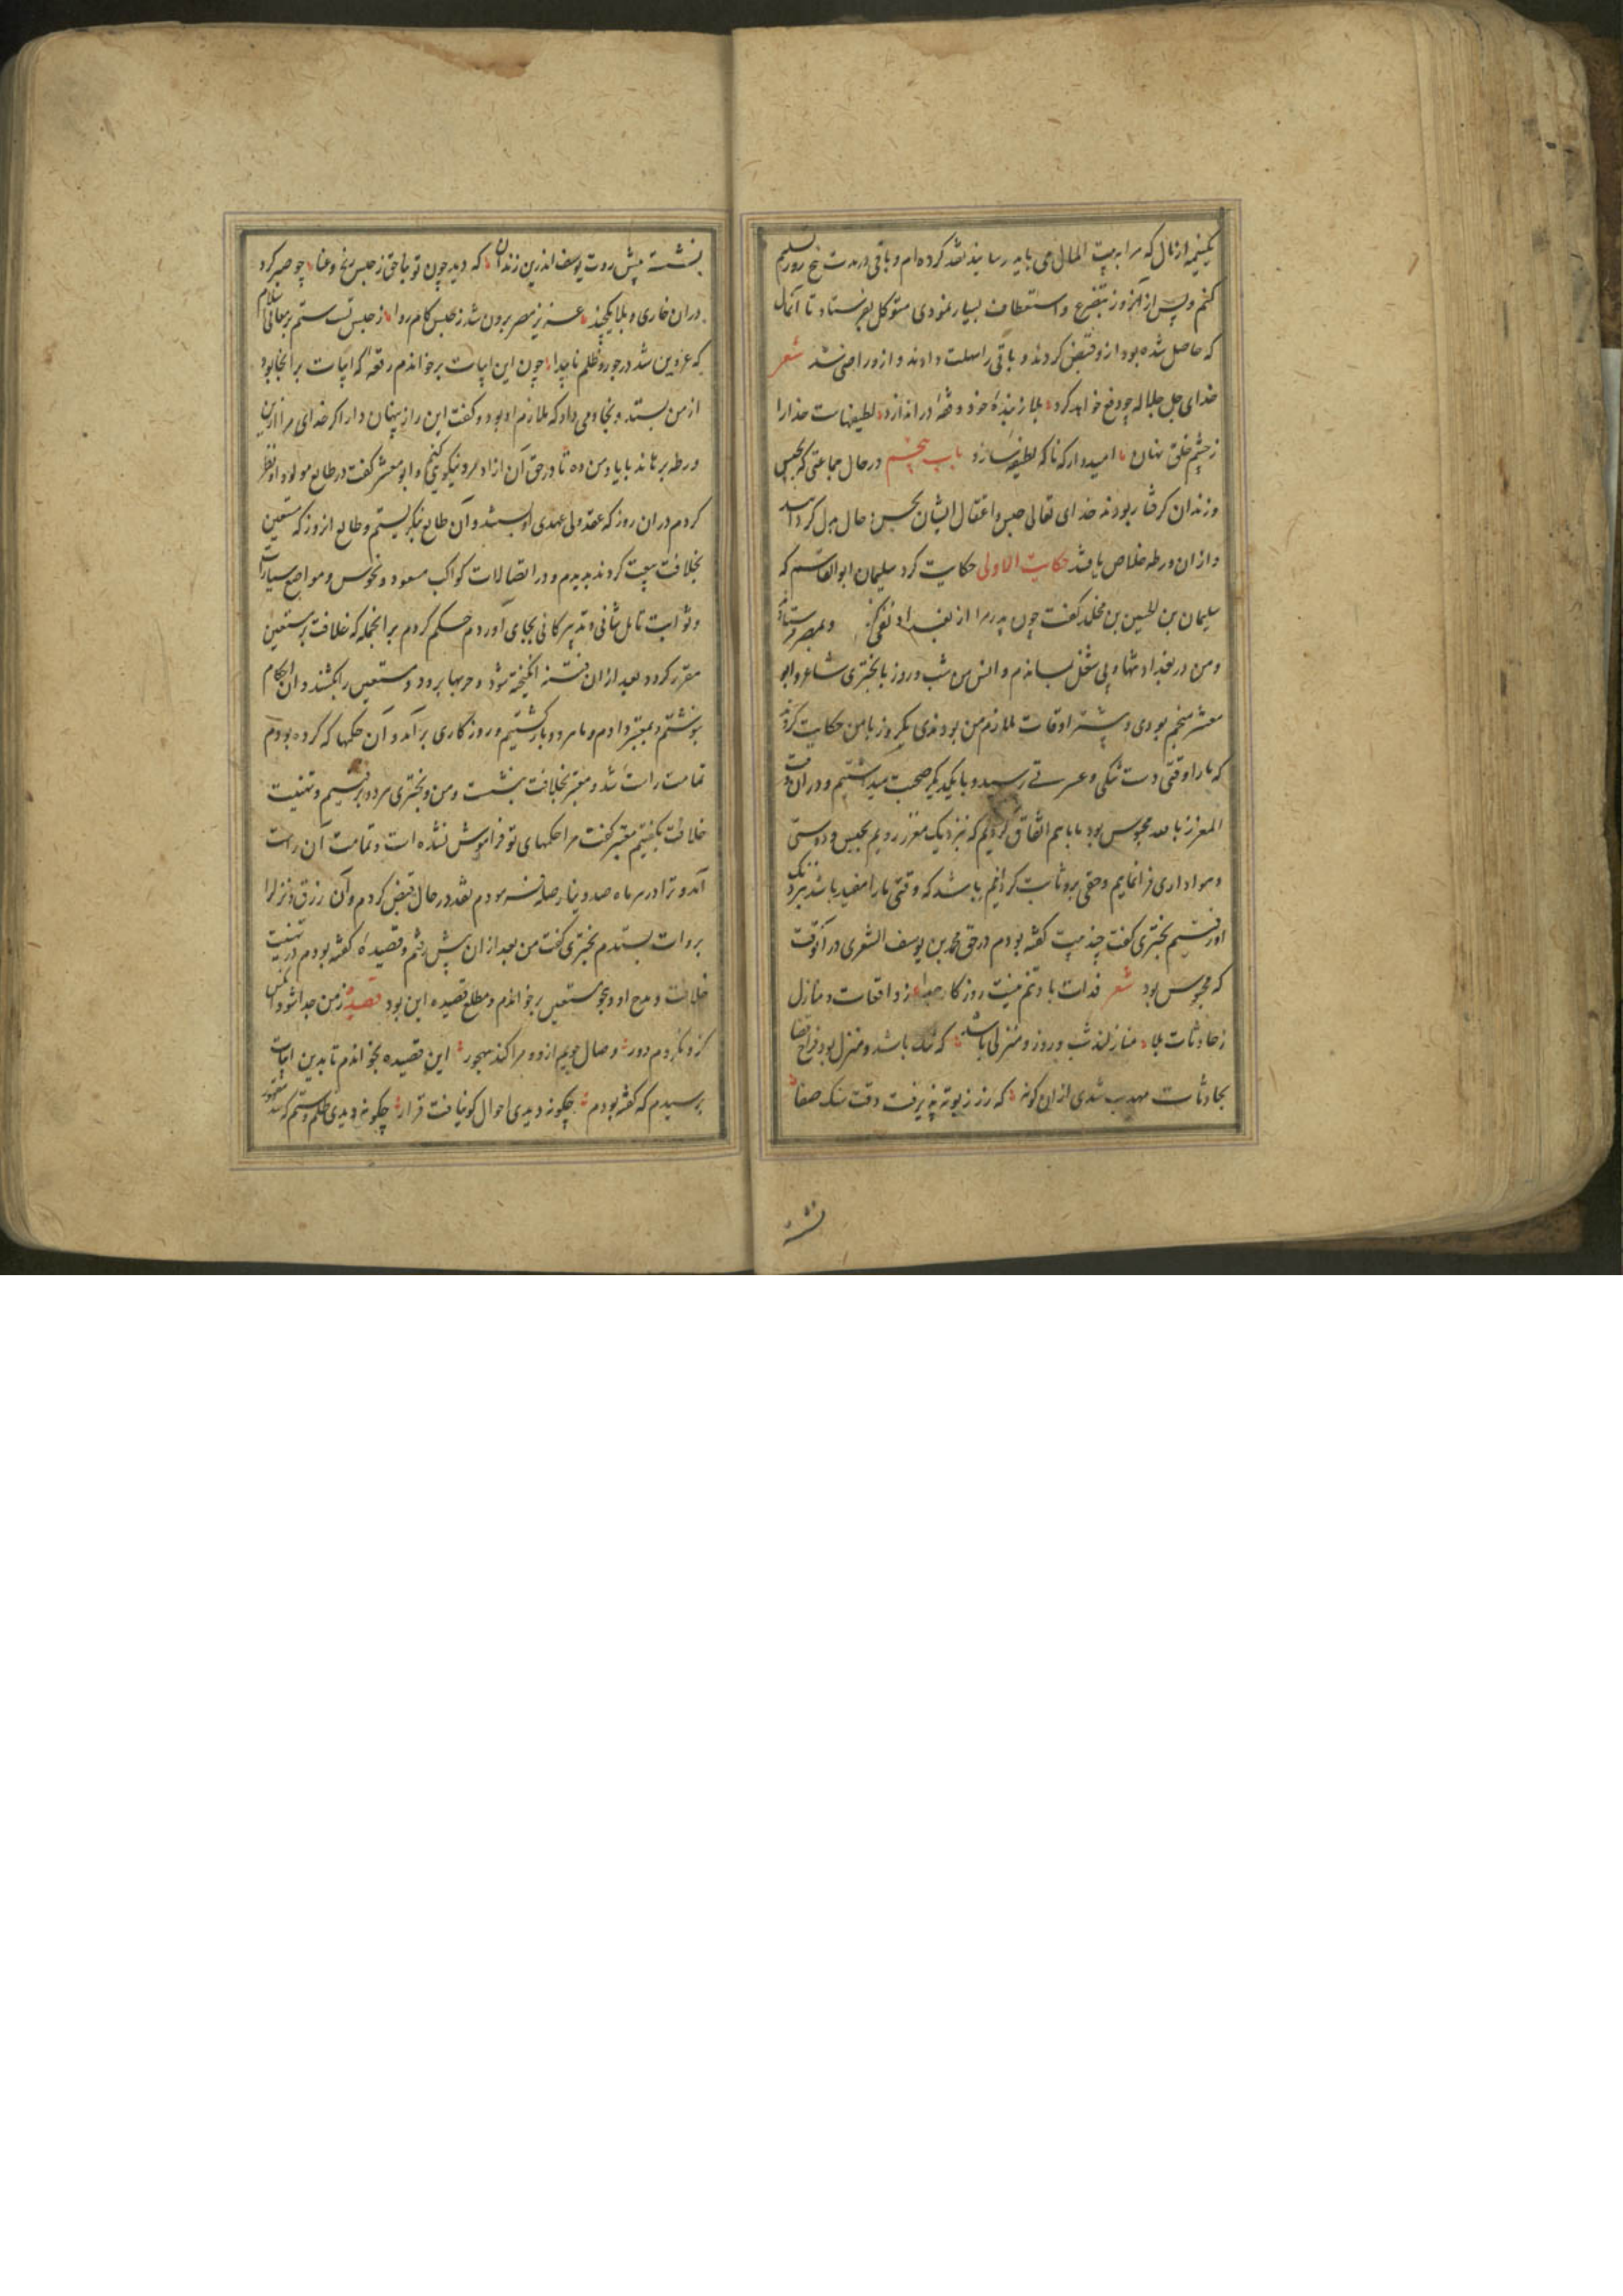 یکنیمه ازنال که مرا به بیت المال می باید رسانید نقد کرده ام و باقی در مدت پنج روز تسلیم
کنم و پس از آنروز بتضرع و استعطاف بسیار نمودی متوکل بفرستاد تا آنمال
که حاصل شده بود ازو قبض کردند و باقی را مهلت دادند و ازو راضی شد شعر
خدای جل جلاله چو دفع خواهد کرد بلا ز بندهٔ خود وقفه در اندازد لطیفهاست خدارا
ز چشم خلق نهان امیدوار که ناکه لطیفه سازد باب پنجم در حال جماعتی که بحبس
و زندان گرفتار بودند خدای تعالی حبس و اعتقال ایشان بحسن حال بدل کردانید
و ازان ورطه خلاص یافتند حکایت الاولی حکایت کرد سلیمان ابوالقاسم که
سلیمان بن الحسین بن مخلد گفت چون پدرم را از بغداد نفی و بمصر فرستادند
و من در بغداد تنها و بی شغل بماندم و انس من شب و روز با بختری شاعر و ابو
معشر منجم بودی و بیشتر اوقات ملازم من بودندی یکروز بامن حکایت کردند
که مارا وقتی دست تنکی و عسرتی رسید و با یکدیکر صحبت میداشتیم و دران وقت
المعتز بالله محبوس بود ما باهم اتفاق کردیم که نزدیک معتز رویم بحبس و دوستی
و هواداری فرا نماییم و حقی برو ثابت کردانیم باشد که وقتی مارا مفید باشد نزدیک
او رفتیم بختری گفت چند بیت گفته بودم در حق محمد بن یوسف الثغری در آنوقت
که محبوس بود شعر فدات باد تنم نیست روزکار جدا ز واقعات و منازل
ز حادثات بلا منازلند شب و روز و منزلی باشد که تنک باشد و منزل بود فراخ فضا
بحادثات مهذب شدی ازان کونه که زر ز بوته پذیرفت وقت سبک صفا
نشسته
بنشسته پیش روت یوسف اندرین زندان که دید چون تو بناحق ز حبس رنج و عنا چو صبر کرد
دران خاری و بلا یکچند عزیز مصر برون شد ز حبس کام روا ز حبس تست ستم بر معالی اسلام
که عز دین شد در جور و ظلم ناپیدا چون این ابیات برخواندم رقعه که ابیات برانجا بود
از من بستد و بخادمی داد که ملازم او بود و گفت این راز پنهان دار اکر خدای مرا ازین
ورطه برهاند با یاد من ده تا در حق آن ازاد مرد نیکویی کنم و ابومعشر گفت در طالع مولود او نظر
کردم دران روز که عقد ولی عهدی او بستند و آن طالع نیکریستم و طالع انروز که مستعین
بخلافت بیعت کردند بدیدم و در اتصالات کواکب مسعود و نحوس و مواضع سیارات
و ثوابت تامل شافی و تدبیر کافی بجای آوردم حکم کردم بر انجمله که خلافت بر مستعین
مقرر کردد بعد ازان فتنه انکیخته شود و حربها برود و مستعین را بکشند و ان احکام
بنوشتم و بمعتز دادم و ما هر دو بازگشتیم و روزکاری برآمد و آن حکمها که کرده بودم
تمامت راست شد و معتز بخلافت بنشست و من و بختری هر دو برفتیم و تهنیت
خلافت بکفتیم معتز گفت مرا حکمهای تو فراموش نشده است و تمامت آن راست
آمد و ترا در هر ماه صد دینار صله فرمودم نقد در حال قبض کردم و آن رزق و نزل را
بروات بستدم بختری گفت من بعد ازان پیش رفتم و قصیدهٔ گفته بودم در تهنیت
خلافت و مدح او و هجو مستعین برخواندم و مطلع قصیده این بود قصیده ز من جدا شود آنکس
کزو نکردم دور وصال جویم ازو و مرا کند مهجور این قصیده بخواندم تا بدین ابیات
برسیدم که گفته بودم چکونه دیدی احوال کو نیافت قرار چکونه دیدی ظلم و ستم که شد مقهور